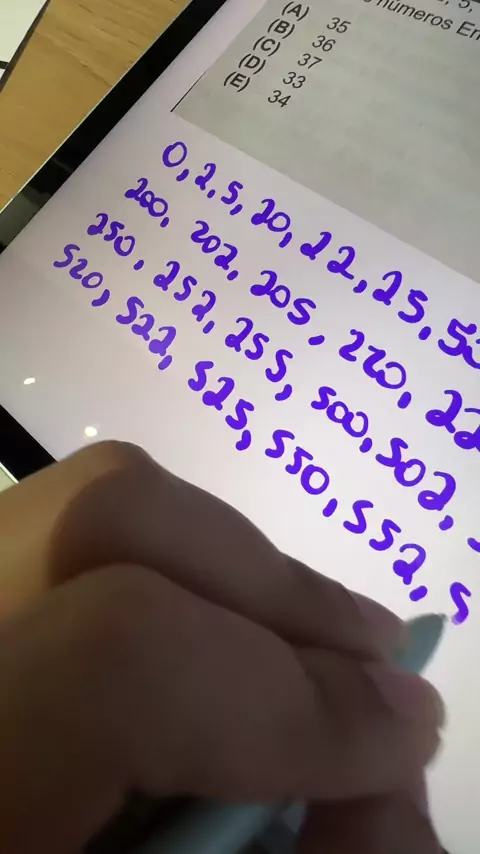 5,
números En
(A) 35
(B) 36
(C) 37
(D) 33
(E) 34
0, 2, 5, 20, 22, 25, 50
200, 202, 205, 220, 22
250, 252, 255, 500, 502,
520, 522, 525, 550, 552, 5